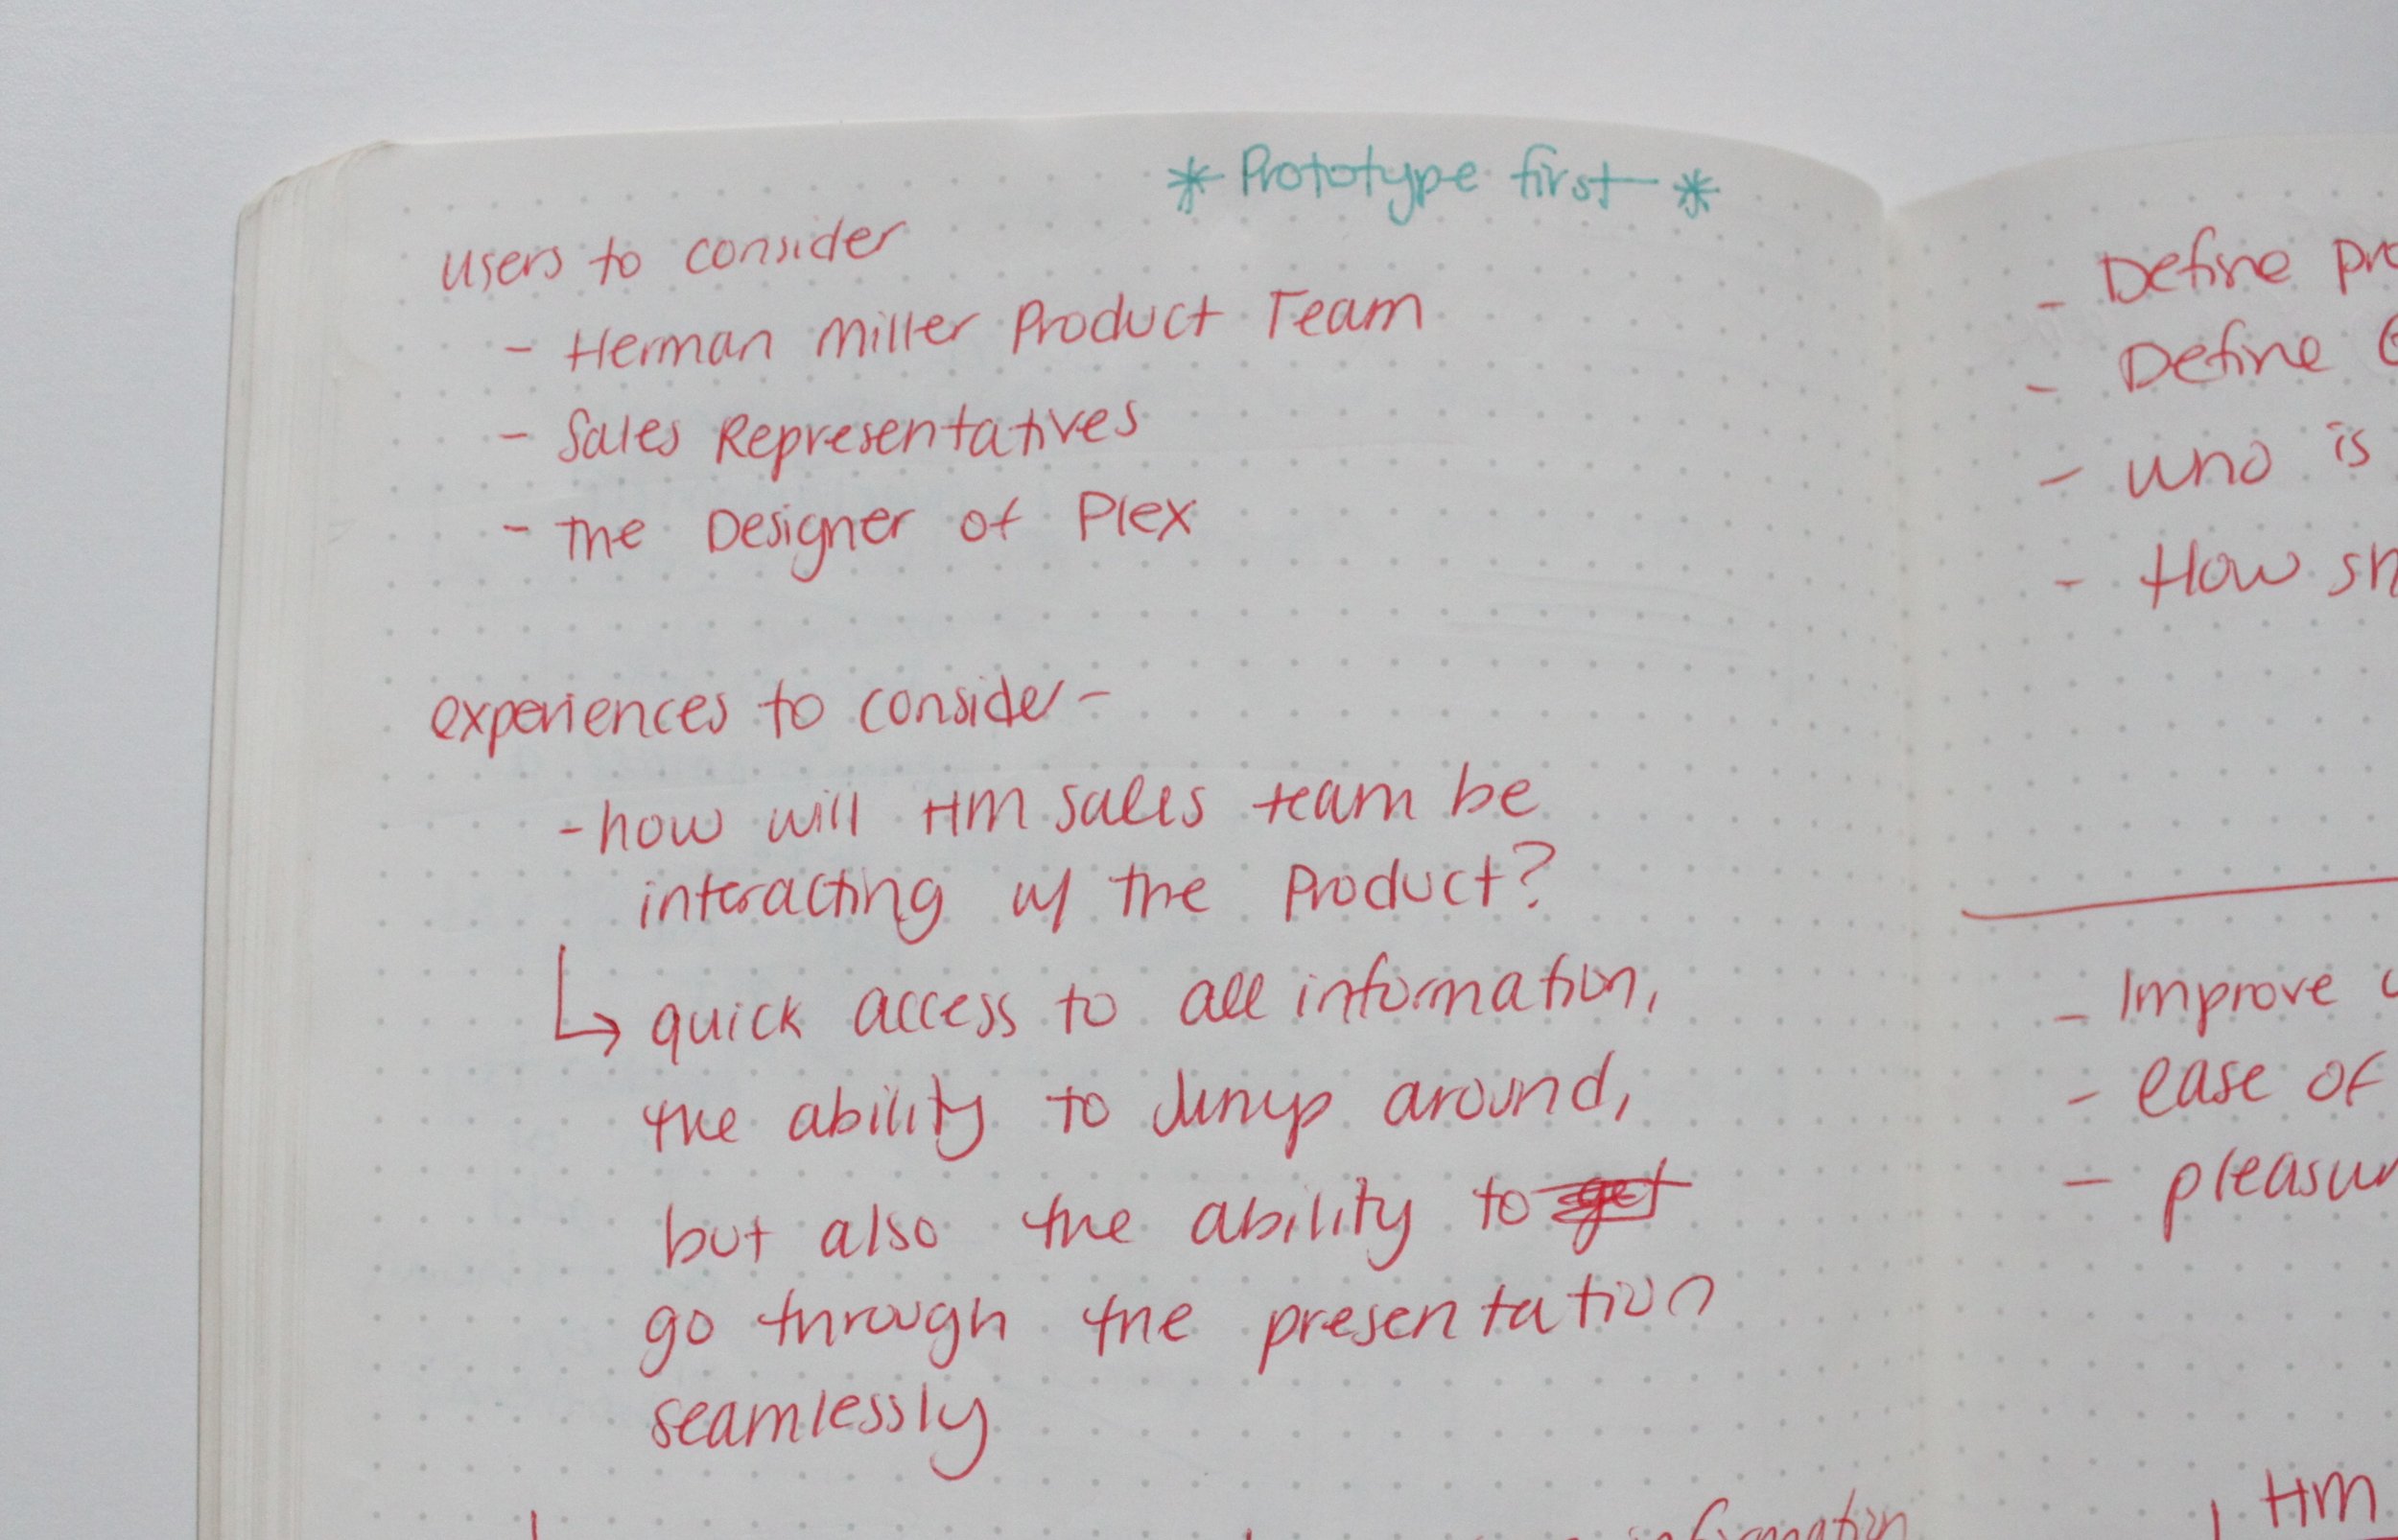 * Prototype first *
users to consider
- Herman Miller Product Team
- Sales Representatives
- The Designer of Plex
experiences to consider -
- how will HM sales team be
interacting w/ the Product?
↳ quick access to all information,
the ability to Jump around,
but also the ability to get
go through the presentation
seamlessly
information
- Define
- Define
- who is
- How
- Improve
- ease of
-
HM